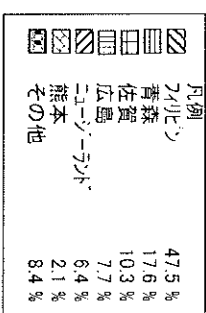 凡例
フィリピン 47.5 %
青森 17.6 %
佐賀 10.3 %
広島 7.7 %
ニュージーランド 6.4 %
熊本 2.1 %
その他 8.4 %